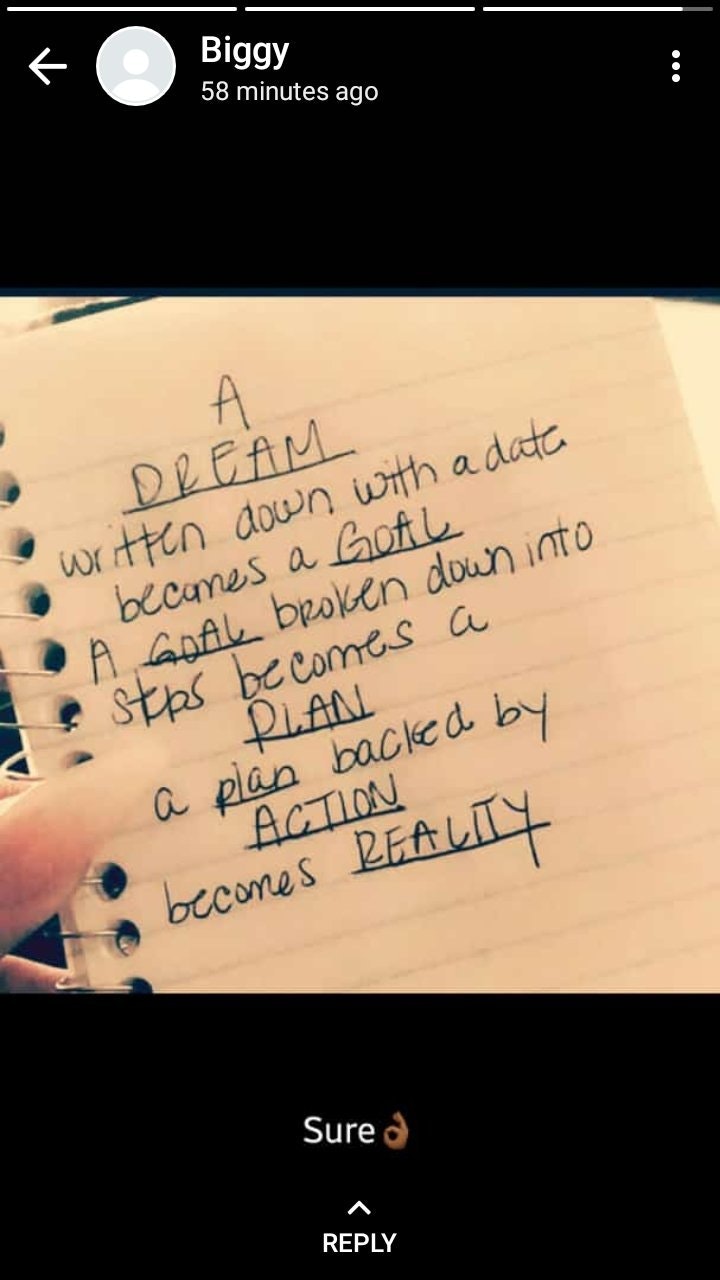 Biggy
58 minutes ago
A
DREAM
written down with a date
becomes a GOAL
A GOAL broken down into
steps becomes a
PLAN
a plan backed by
ACTION
becomes REALITY
Sure👌🏾
REPLY